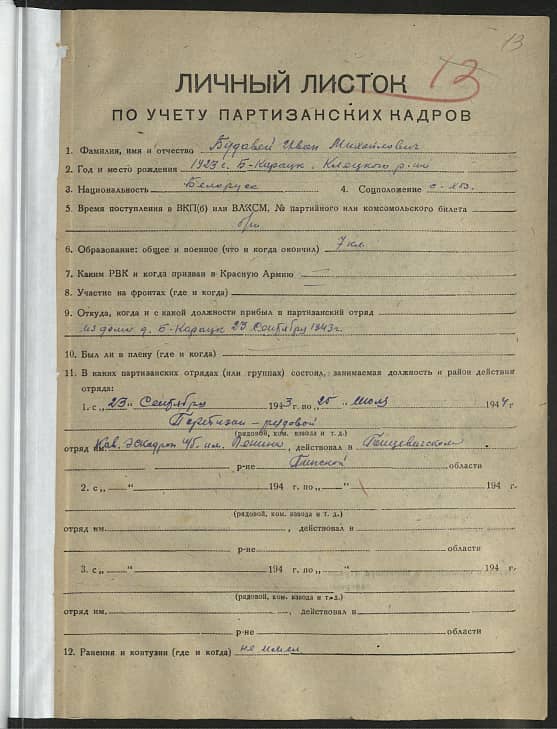 13
13
ЛИЧНЫЙ ЛИСТОК
ПО УЧЕТУ ПАРТИЗАНСКИХ КАДРОВ
1. Фамилия, имя и отчество Будавей Иван Михайлович
2. Год и место рождения 1923 г. Б-Карацк. Клецкого р-на
3. Национальность Белорусс 4. Соцположение с-хоз.
5. Время поступления в ВКП(б) или ВЛКСМ, № партийного или комсомольского билета
б/п
6. Образование: общее и военное (что и когда окончил) 7 кл.
7. Каким РВК и когда призван в Красную Армию —
8. Участие на фронтах (где и когда)
9. Откуда, когда и с какой должности прибыл в партизанский отряд
из дома д. Б-Карацк 23 Сентября 1943 г.
10. Был ли в плену (где и когда)
11. В каких партизанских отрядах (или группах) состоял, занимаемая должность и район действия
отряда:
1. с „23" Сентября 1943 г. по „20" июля 1944 г
Партизан - рядовой
(рядовой, ком. взвода и т. д.)
отряд им. Кав. Эскадрон Чб. им. Ленина, действовал в Ганцевичском
р-не Пинской области
2. с „ — " 194 г. по „ — " 194 г.
(рядовой, ком. взвода и т. д.)
отряд им. , действовал в
р-не области
3. с „ — " 194 г. по „ — " 194 г.
(рядовой, ком. взвода и т. д.)
отряд им. , действовал в
р-не области
12. Ранения и контузии (где и когда) не имел